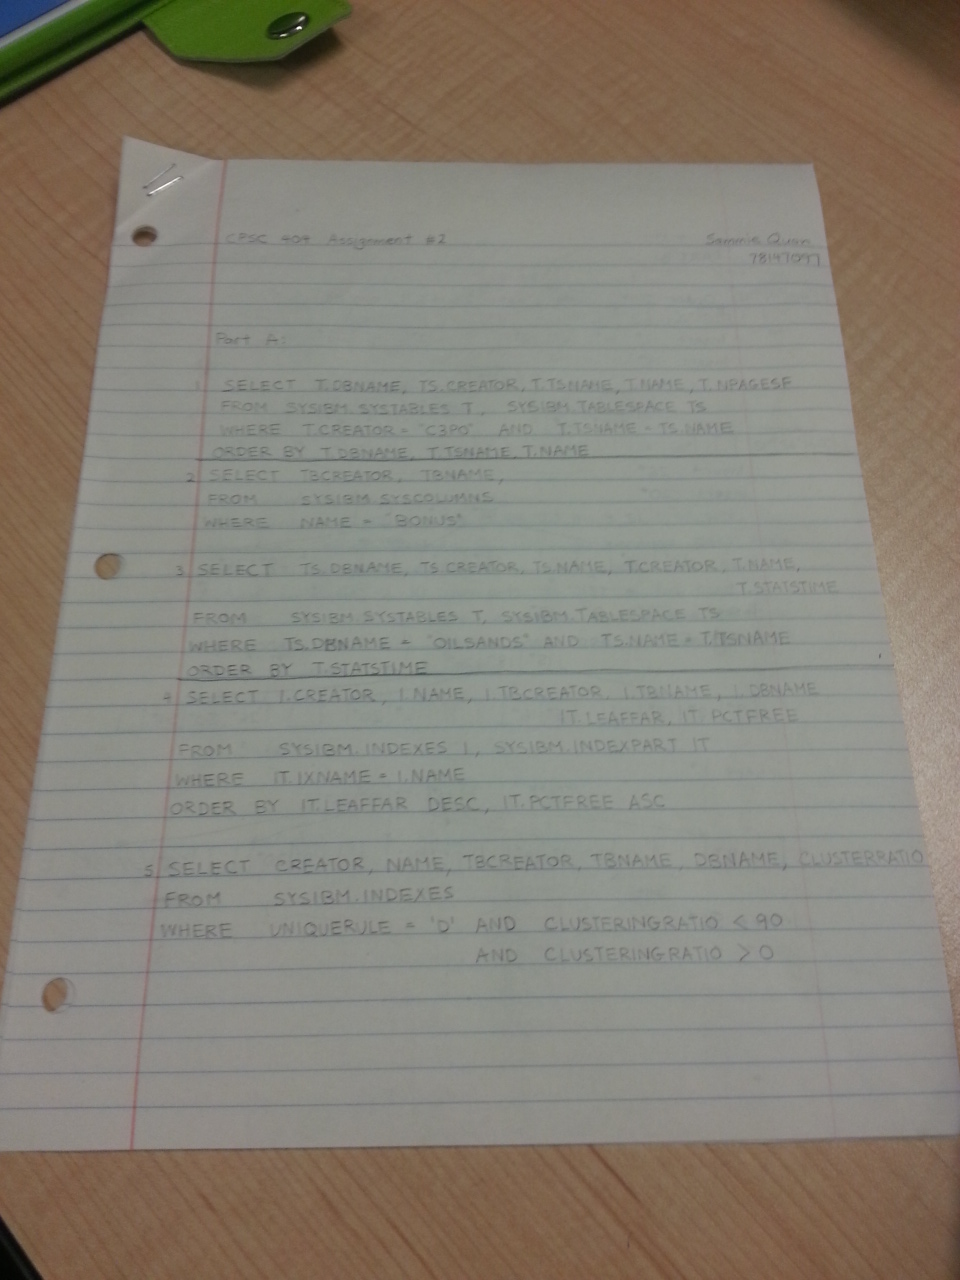 CPSC 404 Assignment #2
Sammie Quan
78147097
Part A:
1 SELECT T.DBNAME, TS.CREATOR, T.TSNAME, T.NAME, T.NPAGESF
FROM SYSIBM.SYSTABLES T, SYSIBM.TABLESPACE TS
WHERE T.CREATOR = "C3PO" AND T.TSNAME = TS.NAME
ORDER BY T.DBNAME, T.TSNAME, T.NAME
2 SELECT TBCREATOR, TBNAME,
FROM SYSIBM.SYSCOLUMNS
WHERE NAME = "BONUS"
3 SELECT TS.DBNAME, TS.CREATOR, TS.NAME, T.CREATOR, T.NAME,
T.STATSTIME
FROM SYSIBM.SYSTABLES T, SYSIBM.TABLESPACE TS
WHERE TS.DBNAME = "OILSANDS" AND TS.NAME = T.TSNAME
ORDER BY T.STATSTIME
4 SELECT I.CREATOR, I.NAME, I.TBCREATOR, I.TBNAME, I.DBNAME
IT.LEAFFAR, IT.PCTFREE
FROM SYSIBM.INDEXES I, SYSIBM.INDEXPART IT
WHERE IT.IXNAME = I.NAME
ORDER BY IT.LEAFFAR DESC, IT.PCTFREE ASC
5 SELECT CREATOR, NAME, TBCREATOR, TBNAME, DBNAME, CLUSTERRATIO
FROM SYSIBM.INDEXES
WHERE UNIQUERULE = 'D' AND CLUSTERINGRATIO < 90
AND CLUSTERINGRATIO > 0